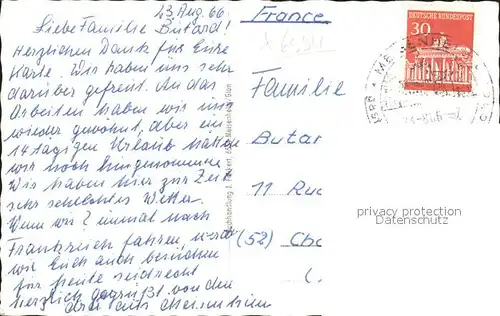 23 Aug. 66
Liebe Familie Butard!
Herzlichen Dank für Eure
Karte. Wir haben uns sehr
darüber gefreut. An das
Arbeiten haben wir uns
wieder gewöhnt, aber ein
14 tägigen Urlaub hätten
wir noch hingenommen
Wir haben hier zur Zeit
sehr schlechtes Wetter.
Wenn wir 2 einmal nach
Frankreich fahren, werden
wir Euch auch besuchen
für heute seid recht
herzlich gegrüßt von den
drei aus Meisenheim
France
Familie
Butar
11 Rue
(52) Cha
30
DEUTSCHE BUNDESPOST
privacy protection
Datenschutz